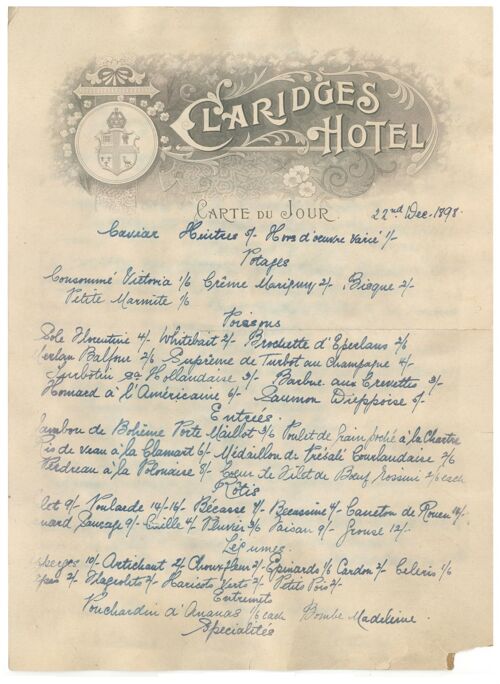 CLARIDGES
HOTEL
CARTE DU JOUR. 22nd Dec. 1898.
Caviar Huitres 5/- Hors d'oeuvre varié 1/-
Potages
Consommé Victoria 1/6 Crême Marigny 2/- Bisque 2/-
Petite Marmite 1/6
Poissons
Sole Florentine 4/- Whitebait 2/- Brochette d'Eperlans 2/6
erlan Balfour 2/6 Suprême de Turbot au Champagne 4/-
Turbotin Hollandaise 3/- Barbue aux Crevettes 3/-
Homard à l'Américaine 6/- Saumon Dieppoise 5/-
Entrées.
ambon de Bohême Porte Maillot 3/6 Poulet de grain poché à la Chartre
is de veau à la Clamart 6/- Médaillon de Courlandaise 2/6
Perdreau à la Polonaise 8/- Coeur de Filet de Boeuf Rossini 2/6 each
Rôtis
lot 9/- Poularde 14/-16/- Bécasse 7/- Bécassine 4/- Caneton de Rouen 14/-
nard Sauvage 9/- Caille 4/- Pluvier 3/6 Faisan 9/- Grouse 12/-
Légumes.
sperges 10/- Artichaut 2/- Choux fleur 2/- Epinards 1/6 Cardon 2/- Céleris 1/6
2/- Flageolets 2/- Haricots Verts 2/- Petits Pois 2/-
Entremets
Pouchardin d'Ananas 1/6 each Bombe Madeleine.
Spécialités